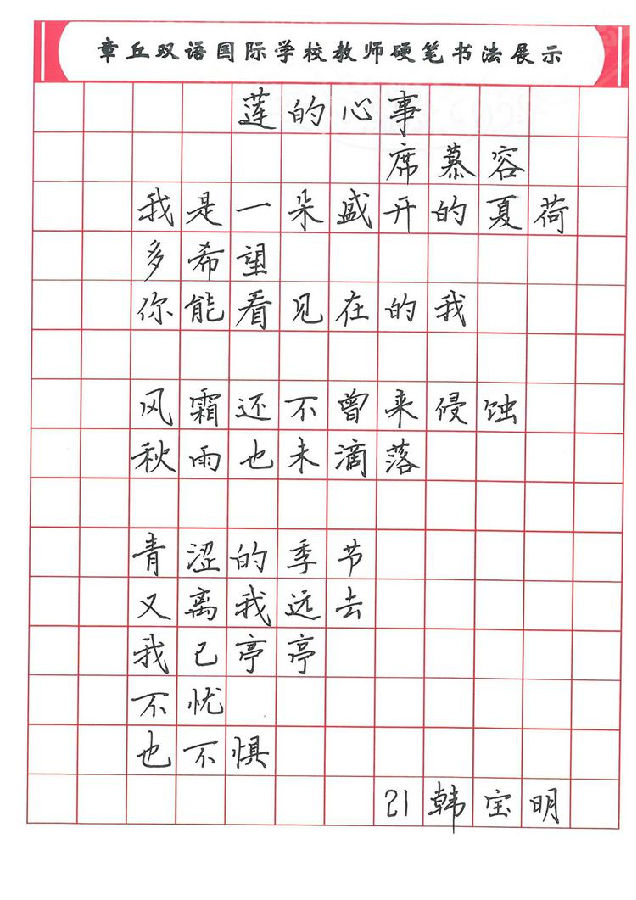 章丘双语国际学校教师硬笔书法展示
莲的心事
席慕容
我是一朵盛开的夏荷
多希望
你能看见在的我
风霜还不曾来侵蚀
秋雨也未滴落
青涩的季节
又离我远去
我已亭亭
不忧
也不惧
21韩宝明